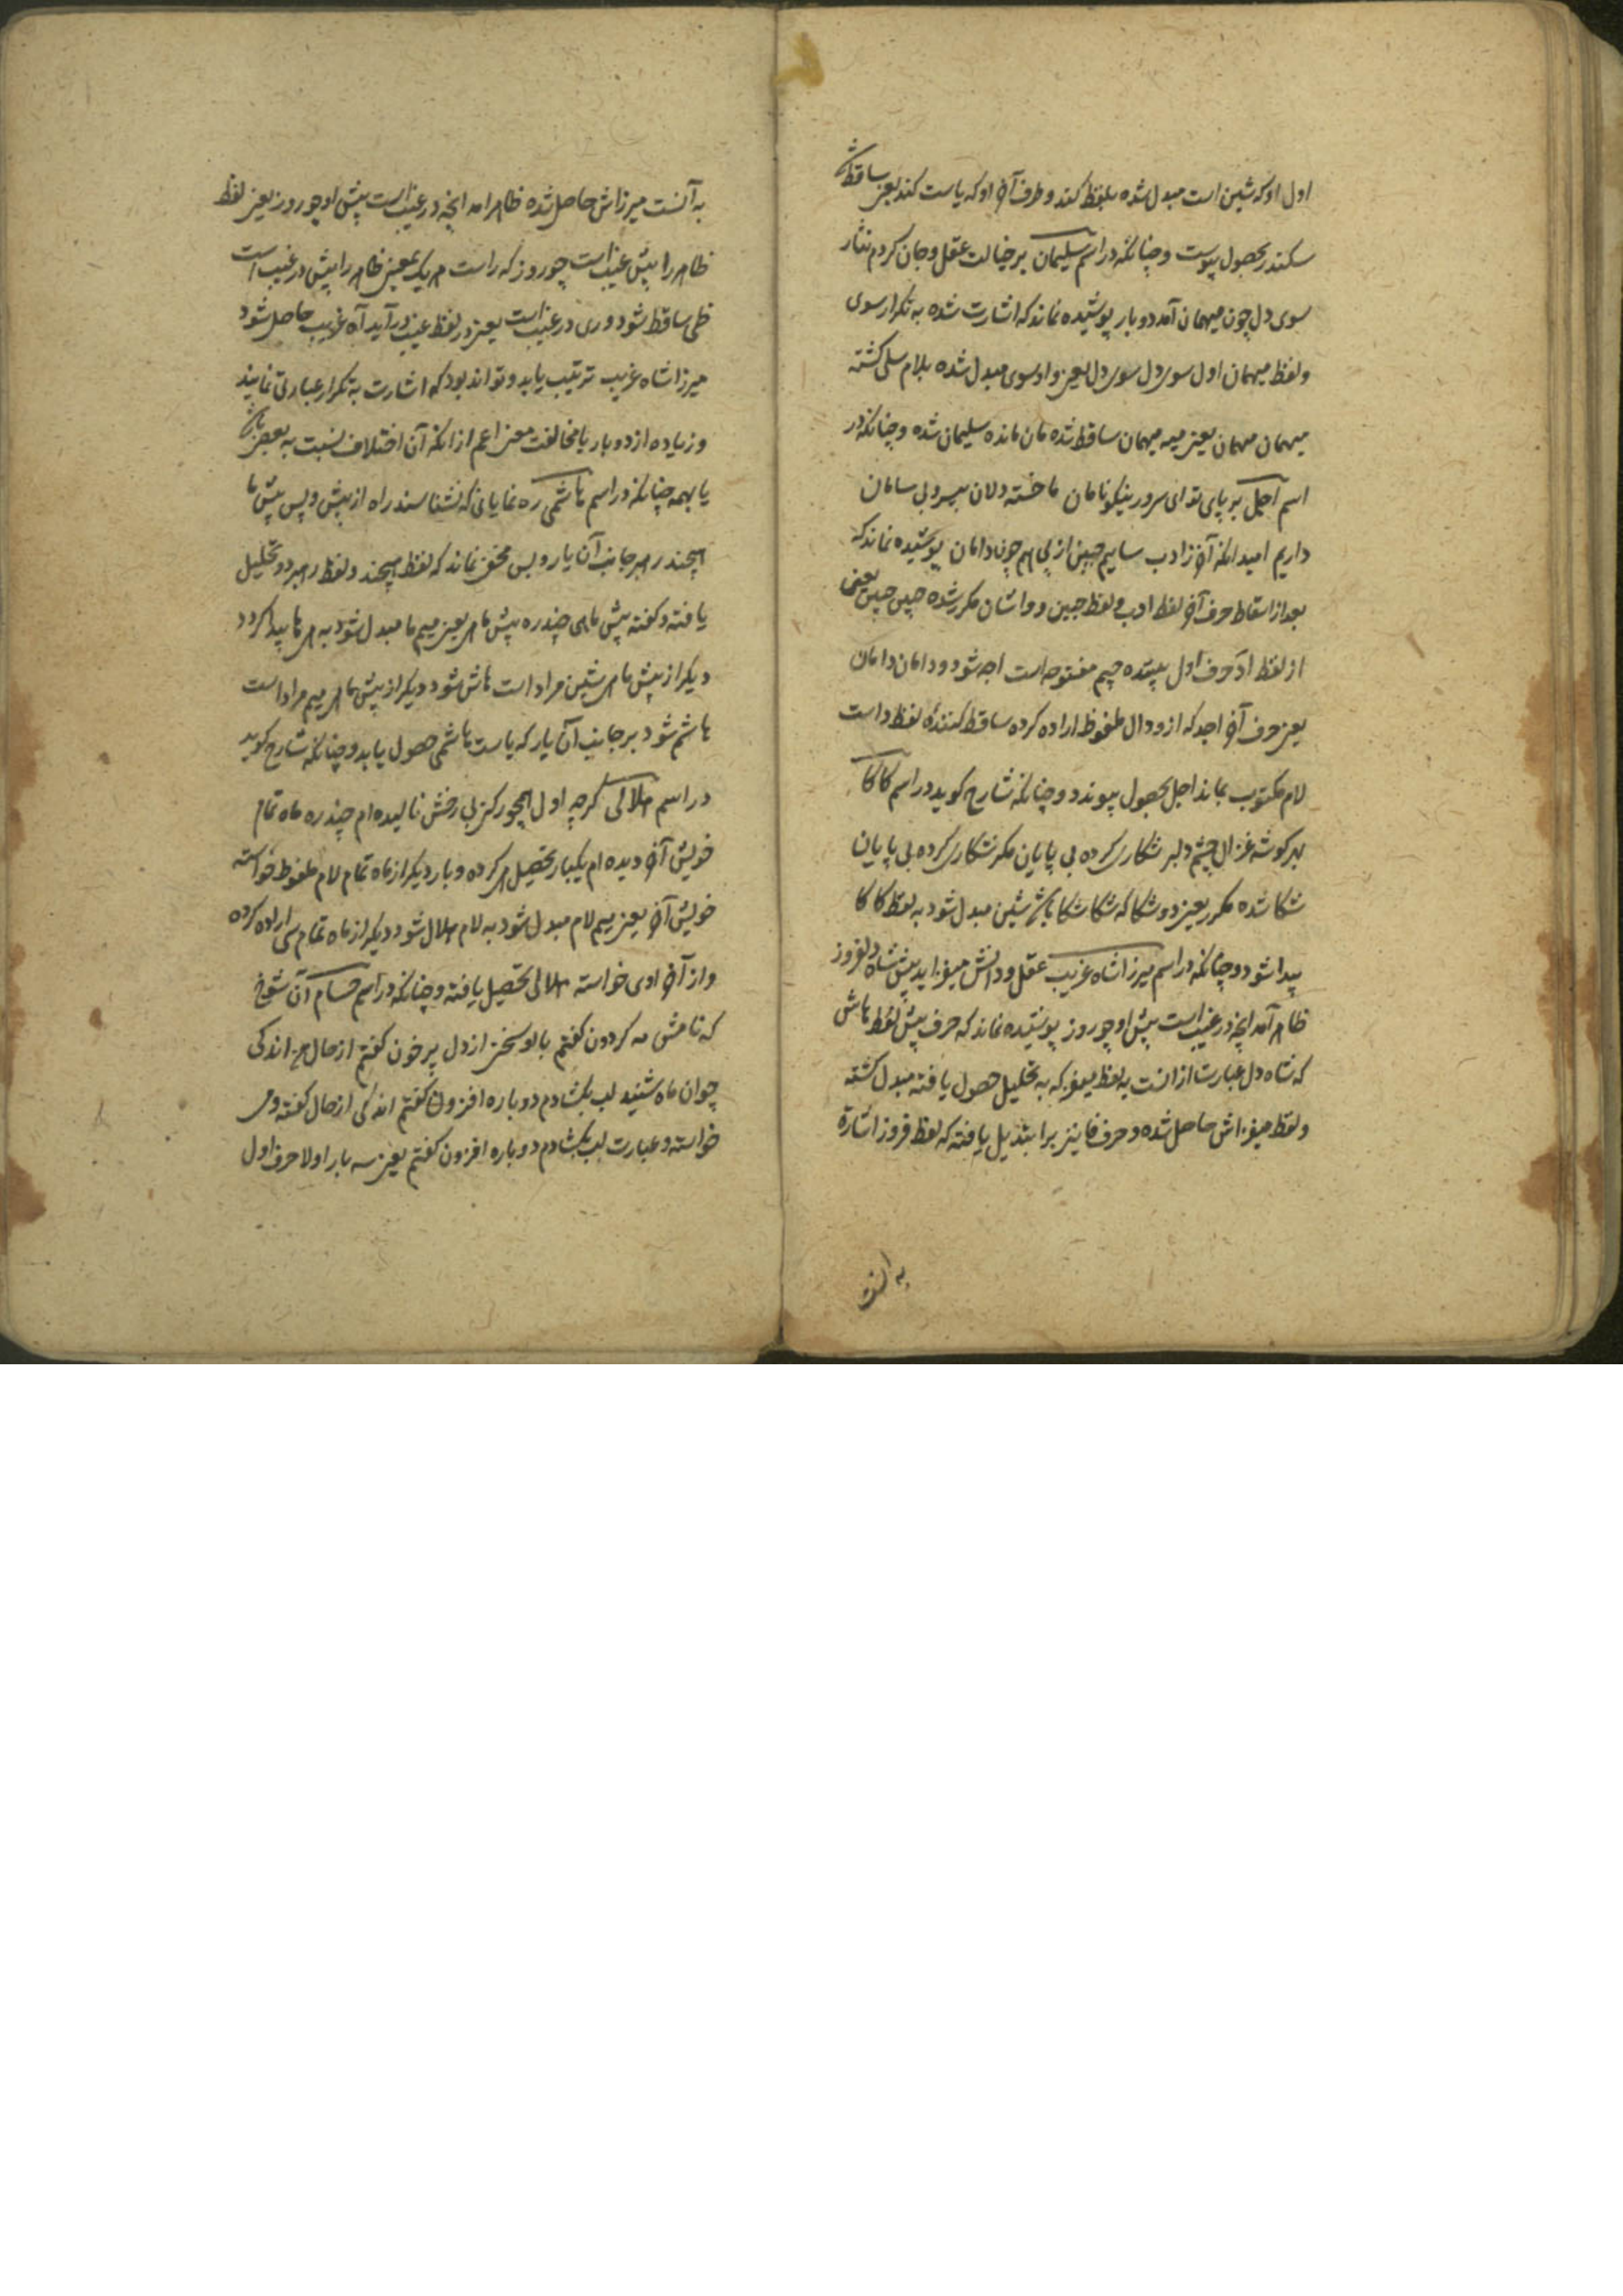 اول او که شین است مبدل شده بلفظ کند و طرف آخر او که یاست کند یعنی ساقط
سکندر بحصول پیوست و چنانکه در اسم سلیمان بر خیالت عقل و جان کردم نثار
سوی دل چون میهمان آمد دو بار پوشیده نماند که اشارت شده به تکرار سوی
ولفظ میهمان اول سوی دل سوی دل یعنی واو سوی مبدل شده بلام سلی کشته
میهمان مهمان یعنی میم میهمان ساقط شده مان مانده سلیمان شده و چنانکه در
اسم اجل بر پای تو ای سرور نیکونامان ما خسته دلان بیسر و بی سامان
داریم امید انکه آخر ز ادب ساییم جبین از پی هم چون دامان پوشیده نماند که
بعد از اسقاط حرف آخر لفظ ادب و لفظ جبین و دامان مکرر شده جبین جبین یعنی
از لفظ اد حرف اول جیم مفتوحه است اجد شود و دامان دامان
یعنی حرف آخر اجد که ازو دال ملفوظ اراده کرده ساقط کننده لفظ داست
لام مکتوب بماند اجل بحصول پیوندد و چنانکه شارح کوید در اسم کاکا
بر کوشه غزال چشم دلبر شکاری کرده بی پایان مکر شکاری کرده بی پایان
شکا شده مکرر یعنی دو شکا که شکا شکا شین مبدل شود به لفظ کاکا
پیدا شود و چنانکه در اسم میرزا شاه غریب عقل و دانش میفزاید پیش شاه دلفروز
ظاهر آمد انچه در غیب است پیش او چو روز پوشیده نماند که حرف پیش لفظ ماش
که شاه دل عبارت از انست به لفظ میفز که به تحلیل حصول یافته مبدل کشته
ولفظ میفزاش حاصل شده و حرف فا نیز برا تبدیل یافته که لفظ فروز اشارة
به آنست
به آنست میرزاش حاصل شده ظاهر امد انچه در غیب است پیش او چو روز یعنی لفظ
ظاهر را پیش غیب است چو روز که راست هر یک بمعنی ظاهر را پیش در غیب است
ظی ساقط شود و ری در غیب است یعنی در لفظ غیب در آید آه غریب حاصل شود
میرزا شاه غریب ترتیب یابد و تواند بود که اشارت به تکرار عبارتی نمایند
و زیاده از دو بار با مخالفت معنی اعم از انکه آن اختلاف نسبت به بعضی باشد
یا بهمه چنانکه در اسم هاشمی ره نمایانی که نشناسند راه از پیش و پس پیش ما
هیچند رهبر جانب آن یار و بس مخفی نماند که لفظ هیچند و لفظ رهبر دو تحلیل
یافته و کفته پیش ماهی چند ره پیش ماهی یعنی میم ما مبدل شود به هی ها پیدا کردد
دیکر از پیش ماهی شین مراد است هاش شود دیکر از پیش ماهی میم مراد است
هاشم شود بر جانب آن یار که یاست هاشمی حصول یابد و چنانکه شارح کوید
در اسم هلالی کرچه اول همچو رکنی بی رخش نالیده ام چند ره ماه تمام
خویش آخر دیده ام یکبار تحصیل هی کرده و بار دیکر از ماه تمام لام ملفوظ خواسته
خویش آخر یعنی میم لام مبدل شود به لام هلال شود دیکر از ماه تمام سی اراده کرده
و از آخر اوی خواسته هلالی تحصیل یافته و چنانکه در اسم حسام آن شوخ
که نامش مه کردون کفتم با او سخن از دل پر خون کفتم از حال اندکی
چو ان ماه شنید لب بکشادم دو باره افزون کفتم اندکی از حال کفته و حی
خواسته و عبارت لب بکشادم دو باره افزون کفتم یعنی سه بار اولا حرف اول